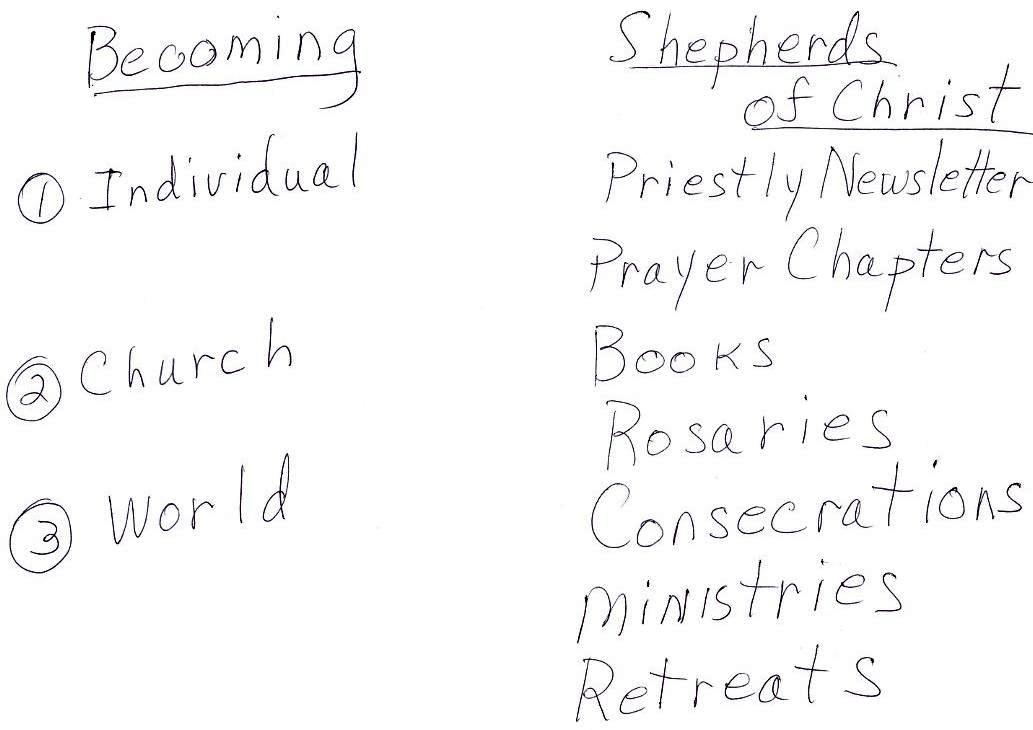 Becoming
① Individual
② Church
③ World
Shepherds
of Christ
Priestly Newsletter
Prayer Chapters
Books
Rosaries
Consecrations
Ministries
Retreats